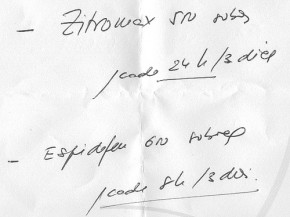 - Zitromax 500 sobres
1 cada 24 h / 3 dies
- Espidifen 600 sobres
1 cada 8h / 3 dies.